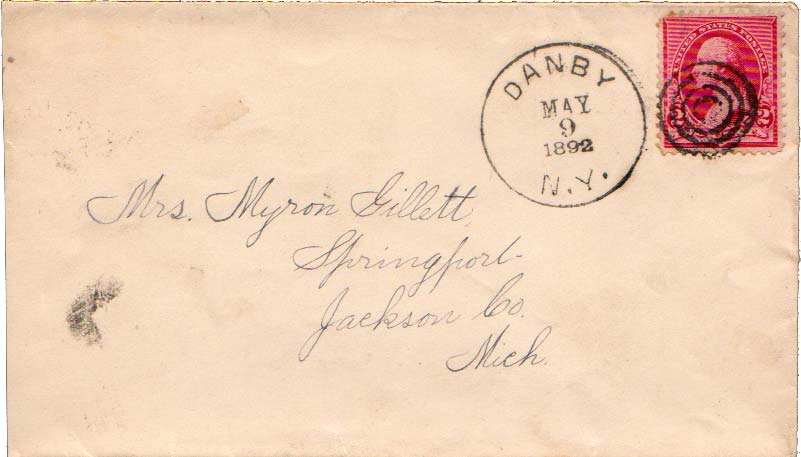 UNITED STATES POSTAGE
2 2
DANBY
MAY
9
1892
N.Y.
Mrs. Myron Gillett
Springport
Jackson Co.
Mich.